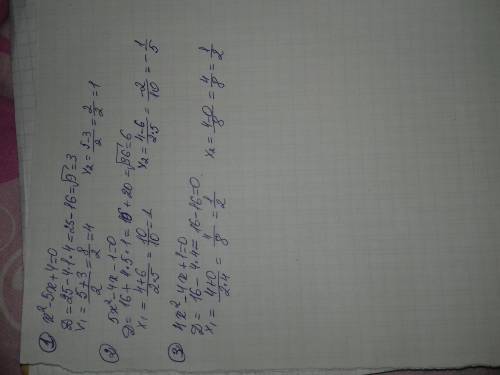 ① x²-5x+4=0
D=25-4·1·4=25-16=√9=3
x₁=(5+3)/2=8/2=4 x₂=(5-3)/2=2/2=1
② 5x²-4x-1=0
D=16+4·5·1=16+20=√36=6
x₁=(4+6)/2·5=10/10=1 x₂=(4-6)/2·5=-2/10=-1/5
③ 4x²-4x+1=0
D=16-4·4=16-16=0
x₁=(4+0)/2·4=4/8=1/2 x₂=(4-0)/8=4/8=1/2